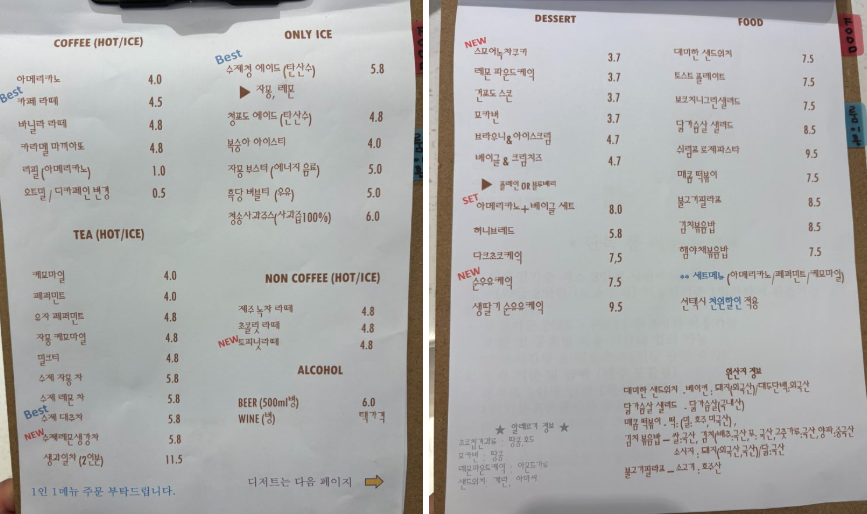 COFFEE (HOT/ICE)
아메리카노 4.0
Best
카페 라떼 4.5
바닐라 라떼 4.8
카라멜 마끼아또 4.8
리필 (아메리카노) 1.0
오트밀 / 디카페인 변경 0.5
TEA (HOT/ICE)
캐모마일 4.0
페퍼민트 4.0
유자 페퍼민트 4.8
자몽 캐모마일 4.8
밀크티 4.8
수제 자몽 차 5.8
수제 레몬 차 5.8
Best
수제 대추차 5.8
NEW
수제레몬생강차 5.8
생과일차 (2인분) 11.5
1인 1메뉴 주문 부탁드립니다.
ONLY ICE
Best
수제청 에이드 (탄산수) 5.8
▶ 자몽, 레몬
청포도 에이드 (탄산수) 4.8
복숭아 아이스티 4.0
자몽 부스터 (에너지 음료) 5.0
흑당 버블티 (우유) 5.0
청송사과쥬스(사과즙100%) 6.0
NON COFFEE (HOT/ICE)
제주 녹차 라떼 4.8
초콜릿 라떼 4.8
NEW 토피넛라떼 4.8
ALCOHOL
BEER (500ml병) 6.0
WINE (병) 택가격
디저트는 다음 페이지
DESSERT
NEW
스모어녹차쿠키 3.7
레몬 파운드케익 3.7
건포도 스콘 3.7
모카번 3.7
브라우니&아이스크림 4.7
베이글 & 크림치즈 4.7
▶ 플레인 OR 블루베리
SET
아메리카노+베이글 세트 8.0
허니브레드 5.8
다크초코케익 7,5
NEW
순우유케익 7.5
생딸기 순우유케익 9.5
★ 알레르기 정보 ★
모카번 : 땅콩
레몬파운드케익 - 아몬드가루
FOOD
대미한 샌드위치 7.5
토스트 플레이트 7.5
보코치니그린샐러드 7.5
닭가슴살 샐러드 8.5
쉬림프 로제파스타 9.5
매콤 떡볶이 7.5
불고기필라프 8.5
김치볶음밥 8.5
햄야채볶음밥 7.5
** 세트메뉴 (아메리카노/페퍼민트/캐모마일)
선택시 천원할인 적용
원산지 정보
대미한 샌드위치 - 베이컨 : 돼지(외국산)/대두단백:외국산
닭가슴살 샐러드 - 닭가슴살(국내산)
매콤 떡볶이 - 떡:(밀: 호주,미국산) ,
김치 볶음밥 – 쌀:국산, 김치(배추:국산,무: 국산,고춧가루:국산, 양파:중국산
소시지 : 돼지(외국산,국산)/닭:국산
불고기필라프 – 소고기 : 호주산